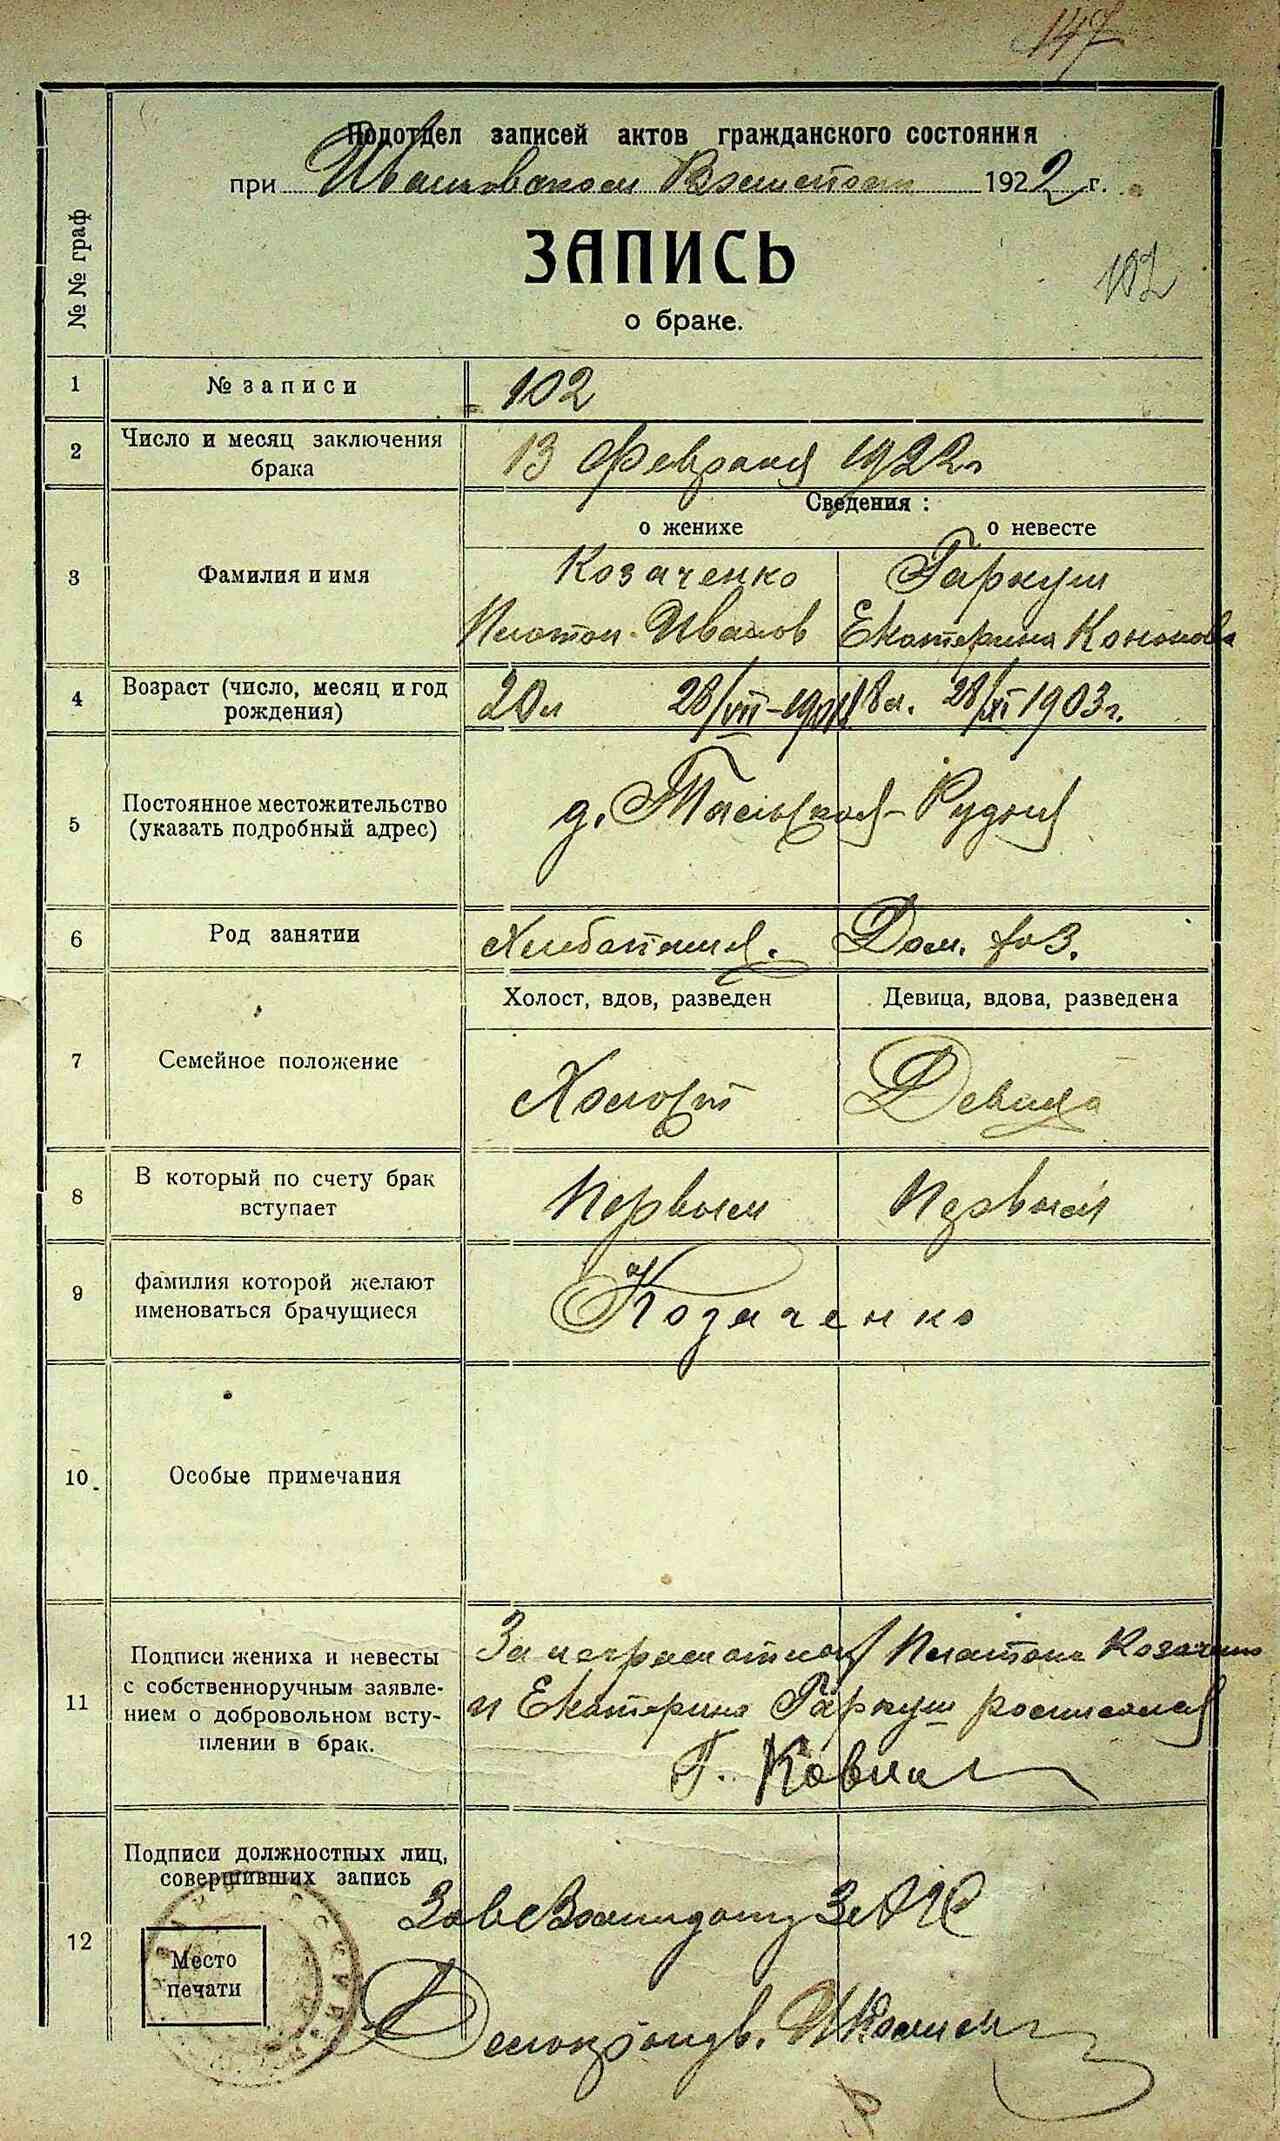 147
Подотдел записей актов гражданского состояния
при Ивановском 1922 г.
ЗАПИСЬ
о браке.
102
№ № граф
1 № записи 102
2 Число и месяц заключения брака 13 Февраля 1922 г
Сведения :
о женихе о невесте
3 Фамилия и имя Козаченко Гаркуш
Платон Иванов Екатерина Кононова
4 Возраст (число, месяц и год рождения) 20 л 28/VII-1901 18 л. 28/XI 1903 г.
5 Постоянное местожительство (указать подробный адрес) д. Тальская-Рудня
6 Род занятии Хлебопашец. Дом. хоз.
Холост, вдов, разведен Девица, вдова, разведена
7 Семейное положение Холост Девица
8 В который по счету брак вступает Первым Первым
9 фамилия которой желают именоваться брачущиеся Козаченко
10 Особые примечания
11 Подписи жениха и невесты с собственноручным заявлением о добровольном вступлении в брак.
За неграмотных Платона Козаченко
и Екатерина Гаркуш росписался
Г.
12 Подписи должностных лиц, совершивших запись
Место печати
ЗАГС
Делопроизв.